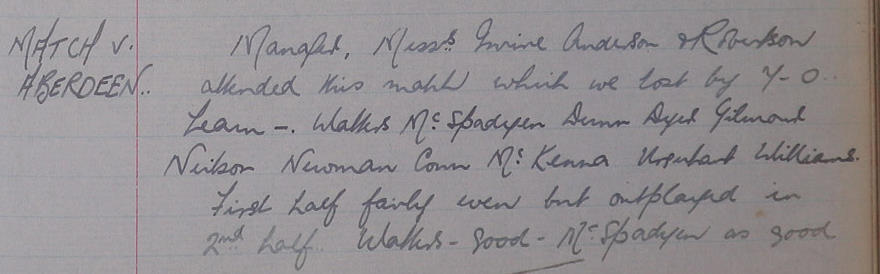 MATCH V.
ABERDEEN.
Manager, Messrs Irvine Anderson & Robertson
attended this match which we lost by 7-0.
Team -. Walters McSpadyen Dunn Dyer Gilmour
Neilson Newman Conn McKenna Urquhart Williams.
First half fairly even but outplayed in
2nd half. Walters - good - McSpadyen as good